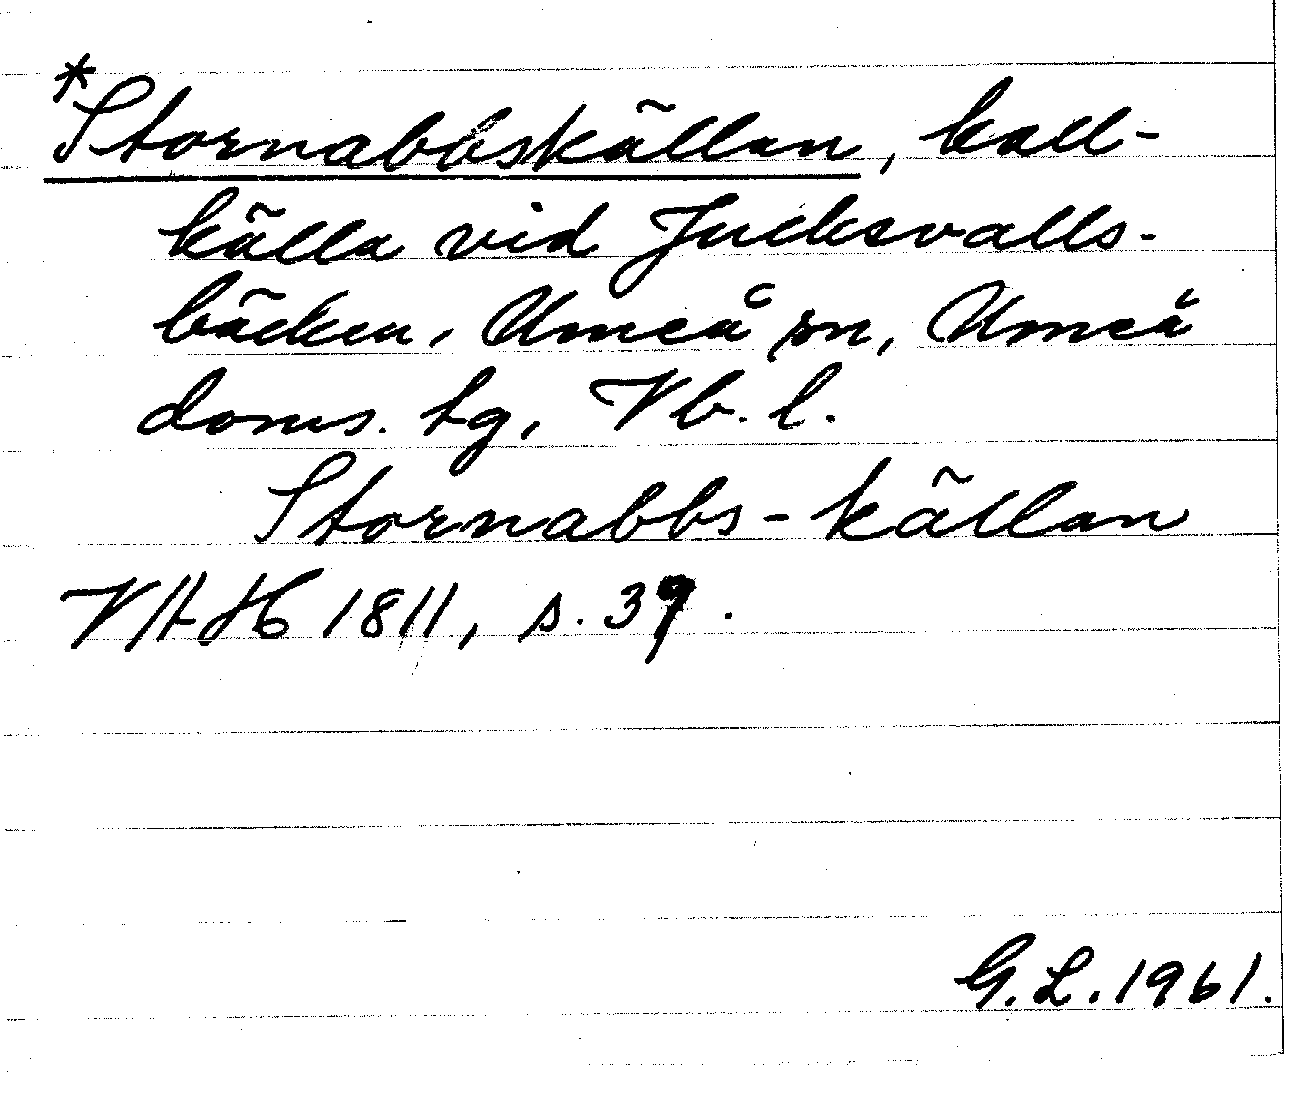 *Stornabbskällan, kall-
källa vid Jucksvalls-
bäcken, Umeå sn, Umeå
doms. tg, Vb. l.
Stornabbs-källan
VAH 1811, s. 39.
G. L. 1961.